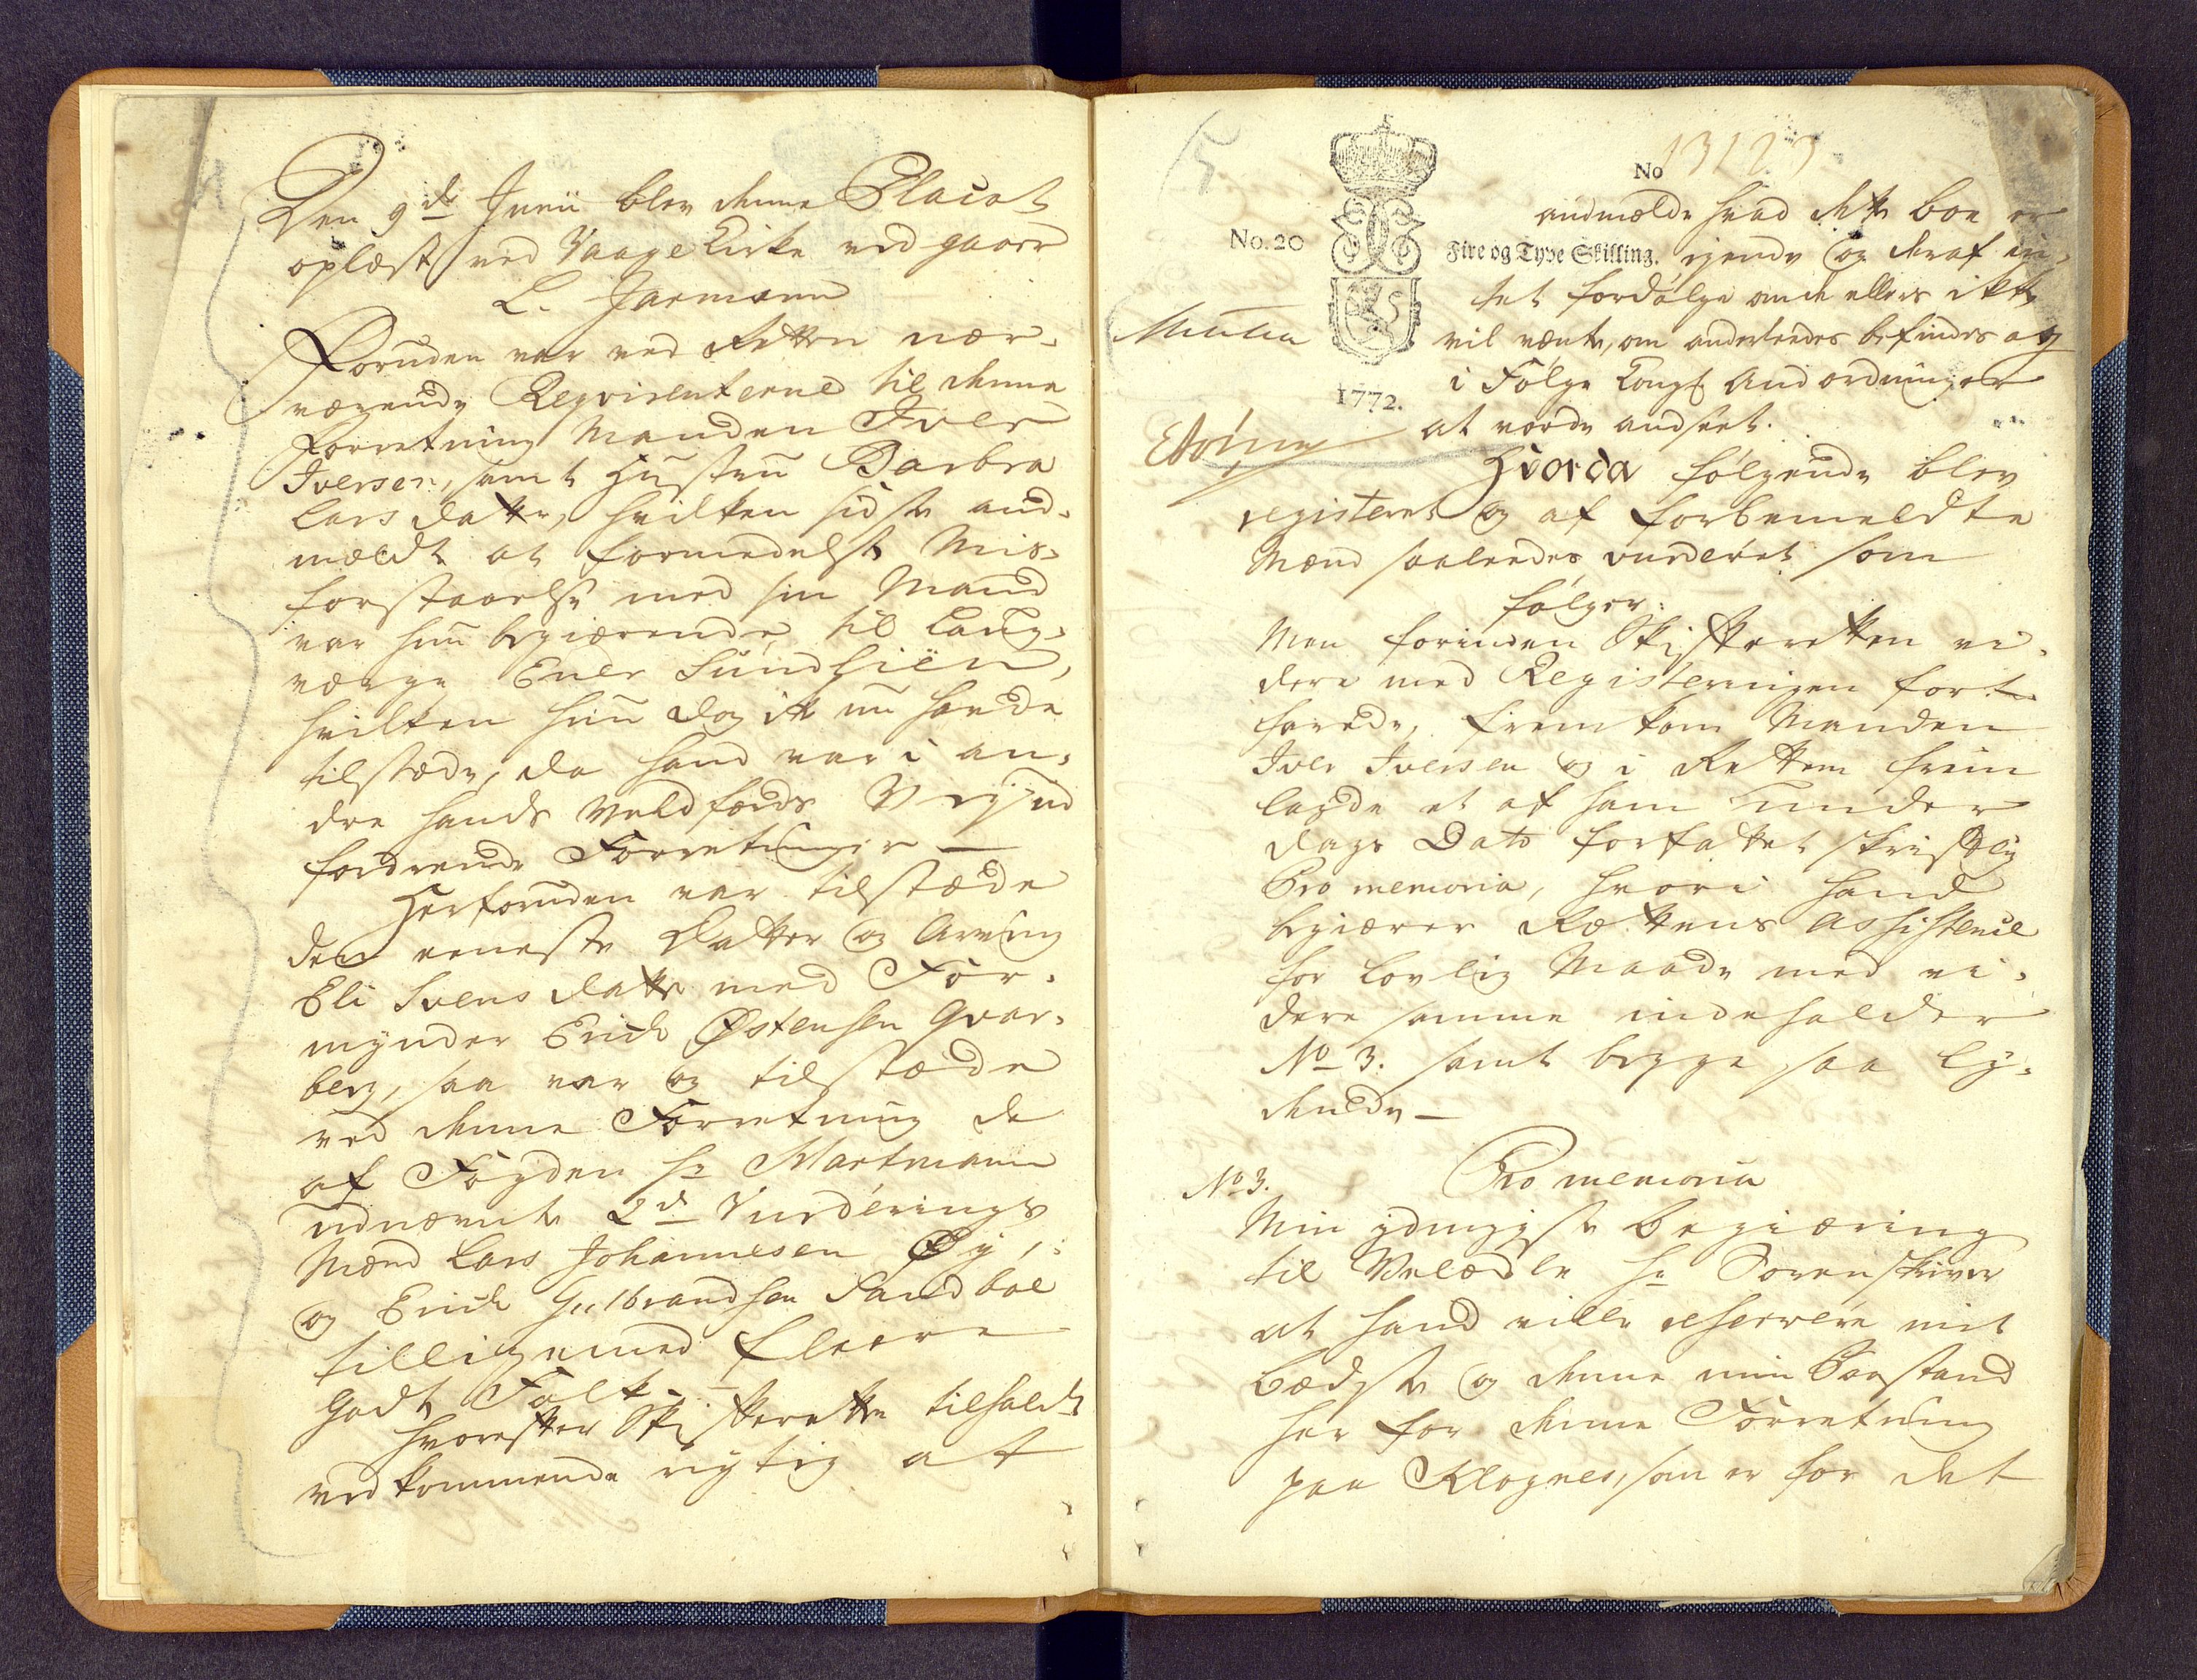 Den 9de Junii blev denne Placat
oplæst ved Vaage Kirke ved gaarr
L. Jarmann
Foruden var ved Retten nær-
værende Reqvirenterne til denne
Forretning Manden Iver
Iversen, samt Hustru Barbra
Lars datter, hvilken sidste and-
mældte at formedelst Mis-
forstaaelse med sin Mand
var hun begiærende til Laug-
værge Ener Sundhiën,
hvilken hun dog ik nu hafde
tilstæde, da hand var i an-
dre hands Velb
fordrende Forretninger —
Herforuden var tilstæde
den eeneste Datter og Arving
Eli Svens datter med For-
mynder Erich Østensen Qvar-
berg, saa var og tilstæde
ved denne Forretning de
af Fogden Hr Martmann
udnævnte 2de Vurderings
Mænd Lars Johannesen Øy,
og Erich Gulbrandsen Sandboe
tilligemed fleere
godt Folk.
Hvorefter Skifteretten tilholdt
vedkommende rigtig at
5
No 13123
andmælde hvad dette boe er
No. 20
Fire og Tyve Skilling. ejende og deraf in-
tet fordølge om de ellers ikke
vil vente, om anderleedes befindes og
i Følge Kongl Andordninger
1772.
at vorde andseet.
Hvorda følgende blev
registeret og af forbemeldte
Mænd saaleedes vurderet som
følger:
Men forinden Skifteretten vi-
dere med Registeringen fort-
farede, fremkom Manden
Iver Iversen og i Retten frem
lagde et af ham under
dags Dato forfattet skriftlig
Pro memoria, hvori hand
begiærer Rættens assistence
for lovlig Maade med vi-
dere samme indeholder
No 3. samt begge saa ly-
dende —
No 3.
Pro memoria
Min ydmygste begiæring
til Velædle Hr Sorenskriver
at hand ville observere mit
bædste og denne min Paastand
her for denne Forretning
paa Klognes, som er for det